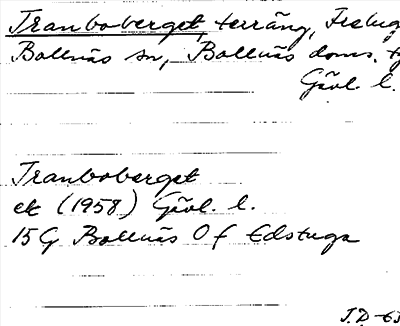 Tranboberget, terräng,
Bollnäs sn, Bollnäs doms.
Gävl. l.
Tranboberget
ek (1958) Gävl. l.
15G Bollnäs 0f Edstuga
J.D. -63